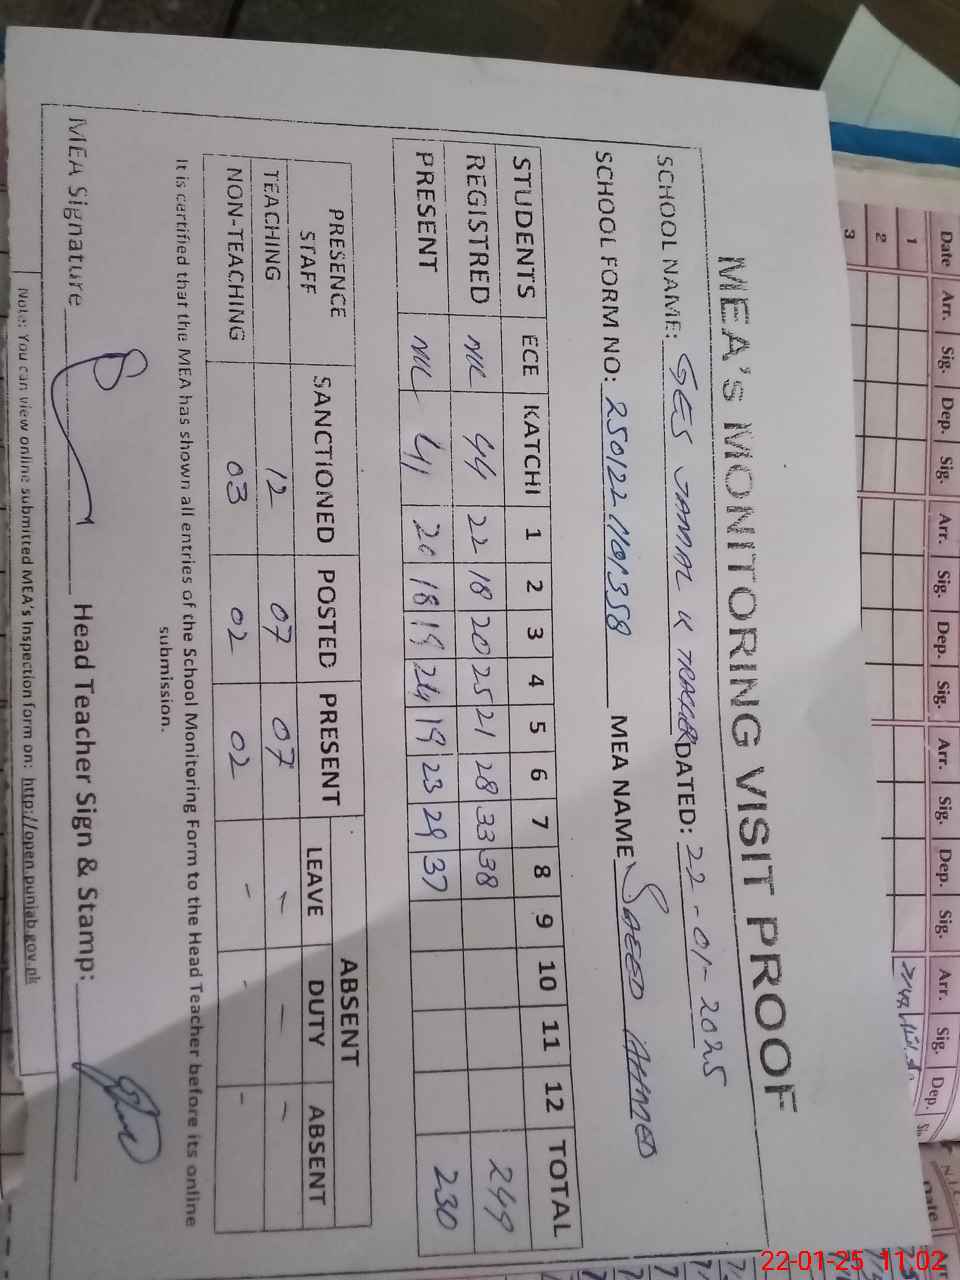 MEA's MONITORING VISIT PROOF
SCHOOL NAME: GES JAMAL K TRACKER DATED: 22-01-2025
SCHOOL FORM NO: 250122 1101358 MEA NAME SAEED AHMED
STUDENTS ECE KATCHI 1 2 3 4 5 6 7 8 9 10 11 12 TOTAL
REGISTRED NIL 44 22 18 20 25 21 28 33 38 249
PRESENT NIL 41 20 18 19 24 19 23 29 37 230
PRESENCE STAFF SANCTIONED POSTED PRESENT ABSENT
LEAVE DUTY ABSENT
TEACHING 12 07 07 - - -
NON-TEACHING 03 02 02 - - -
It is certified that the MEA has shown all entries of the School Monitoring Form to the Head Teacher before its online
submission.
MEA Signature Head Teacher Sign & Stamp:
Note: You can view online submitted MEA's Inspection form on: http://open.punjab.gov.pk
Date Arr. Sig. Dep. Sig. Arr. Sig. Dep. Sig. Arr. Sig. Dep. Sig. Arr. Sig. Dep.
1
2
3
22-01-25 11:02